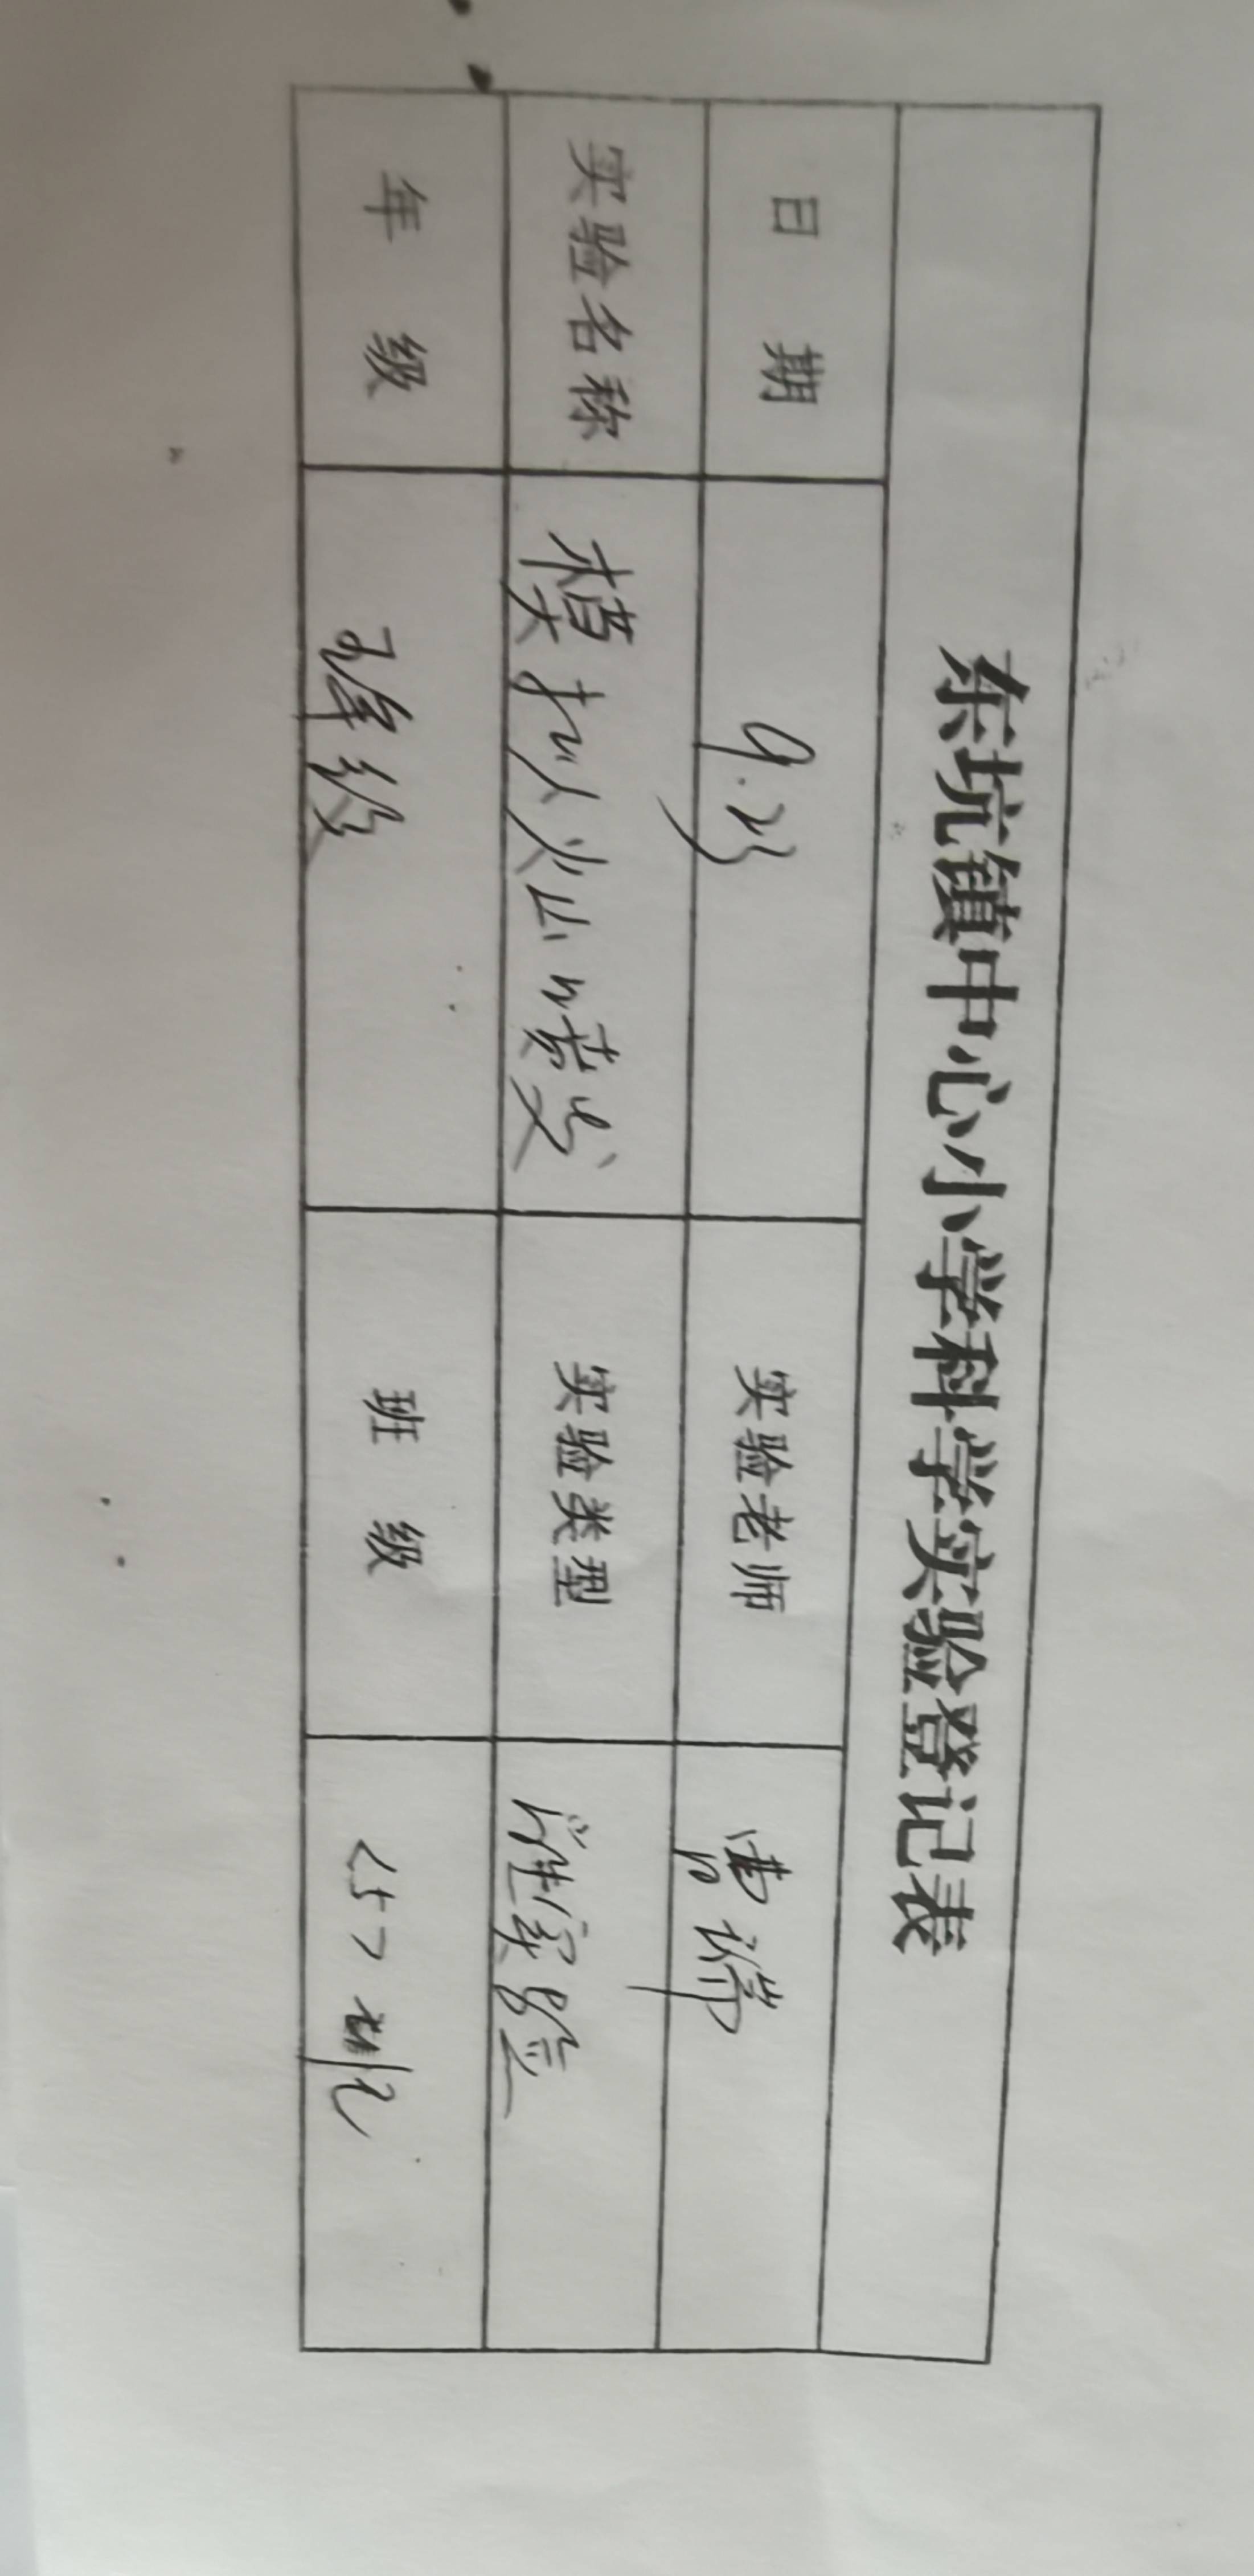 东坑镇中心小学科学实验登记表
日期 9.23 实验老师
实验名称 模拟火山喷发 实验类型 实验
年级 五年级 班级 (5)班